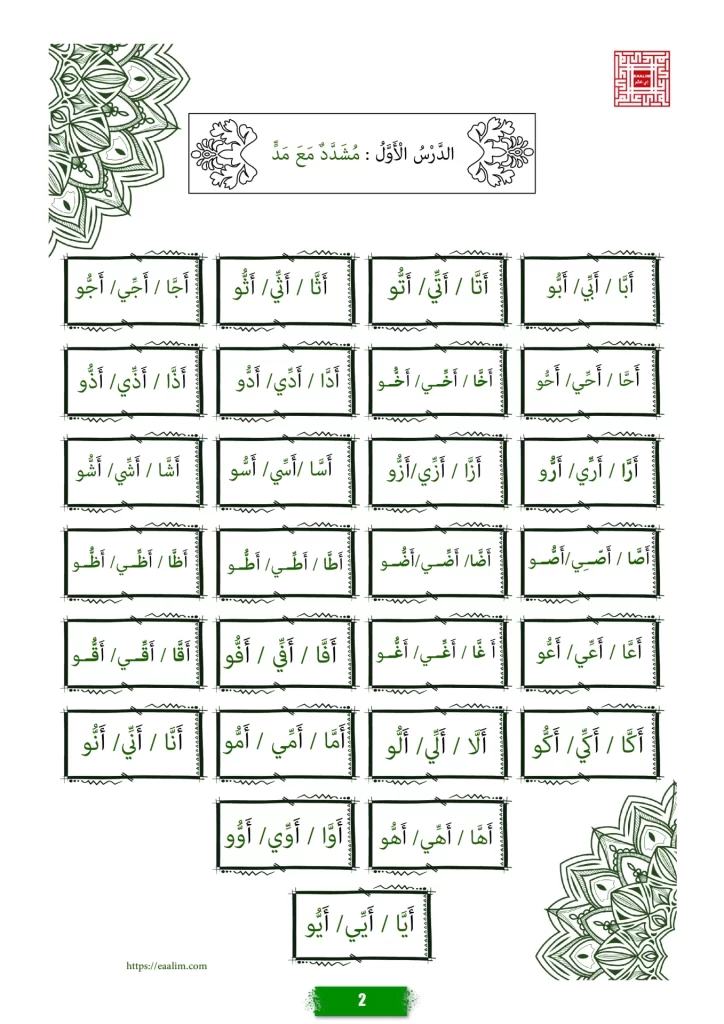 EAALIM
الدَّرْسُ الْأَوَّلُ : مُشَدَّدٌ مَعَ مَدٍّ
أَبَّا / أَبِّي/ أَبُّو
أَتَّا / أَتِّي/ أَتُّو
أَثَّا / أَثِّي/ أَثُّو
أَجَّا / أَجِّي/ أَجُّو
أَحَّا / أَحِّي/ أَحُّو
أَخَّا / أَخِّـي/ أَخُّـو
أَدَّا / أَدِّي/ أَدُّو
أَذَّا / أَذِّي/ أَذُّو
أَرَّا / أَرِّي/ أَرُّو
أَزَّا / أَزِّي/أَزُّو
أَسَّا /أَسِّي/ أَسُّو
أَشَّا / أَشِّي/ أَشُّو
أَصَّا / أَصِّـي/أَصُّـو
أَضَّا/ أَضِّـي/أَضُّـو
أَطَّا / أَطِّـي/ أَطُّـو
أَظَّا / أَظِّـي/ أَظُّـو
أَعَّا / أَعِّي/ أَعُّو
أَ غَّا / أَغِّـي/ أَغُّـو
أَفَّا / أَفِّي / أَفُّو
أَقَّا / أَقِّـي/ أَقُّـو
أَكَّا / أَكِّي/ أَكُّو
أَلَّا / أَلِّي/ أَلُّو
أَمَّا / أَمِّي / أَمُّو
أَنَّا / أَنِّي/ أَنُّو
أَهَّا / أَهِّي/ أَهُّو
أَوَّا / أَوِّي/ أَوُّو
أَيَّا / أَيِّي/ أَيُّو
https://eaalim.com
2